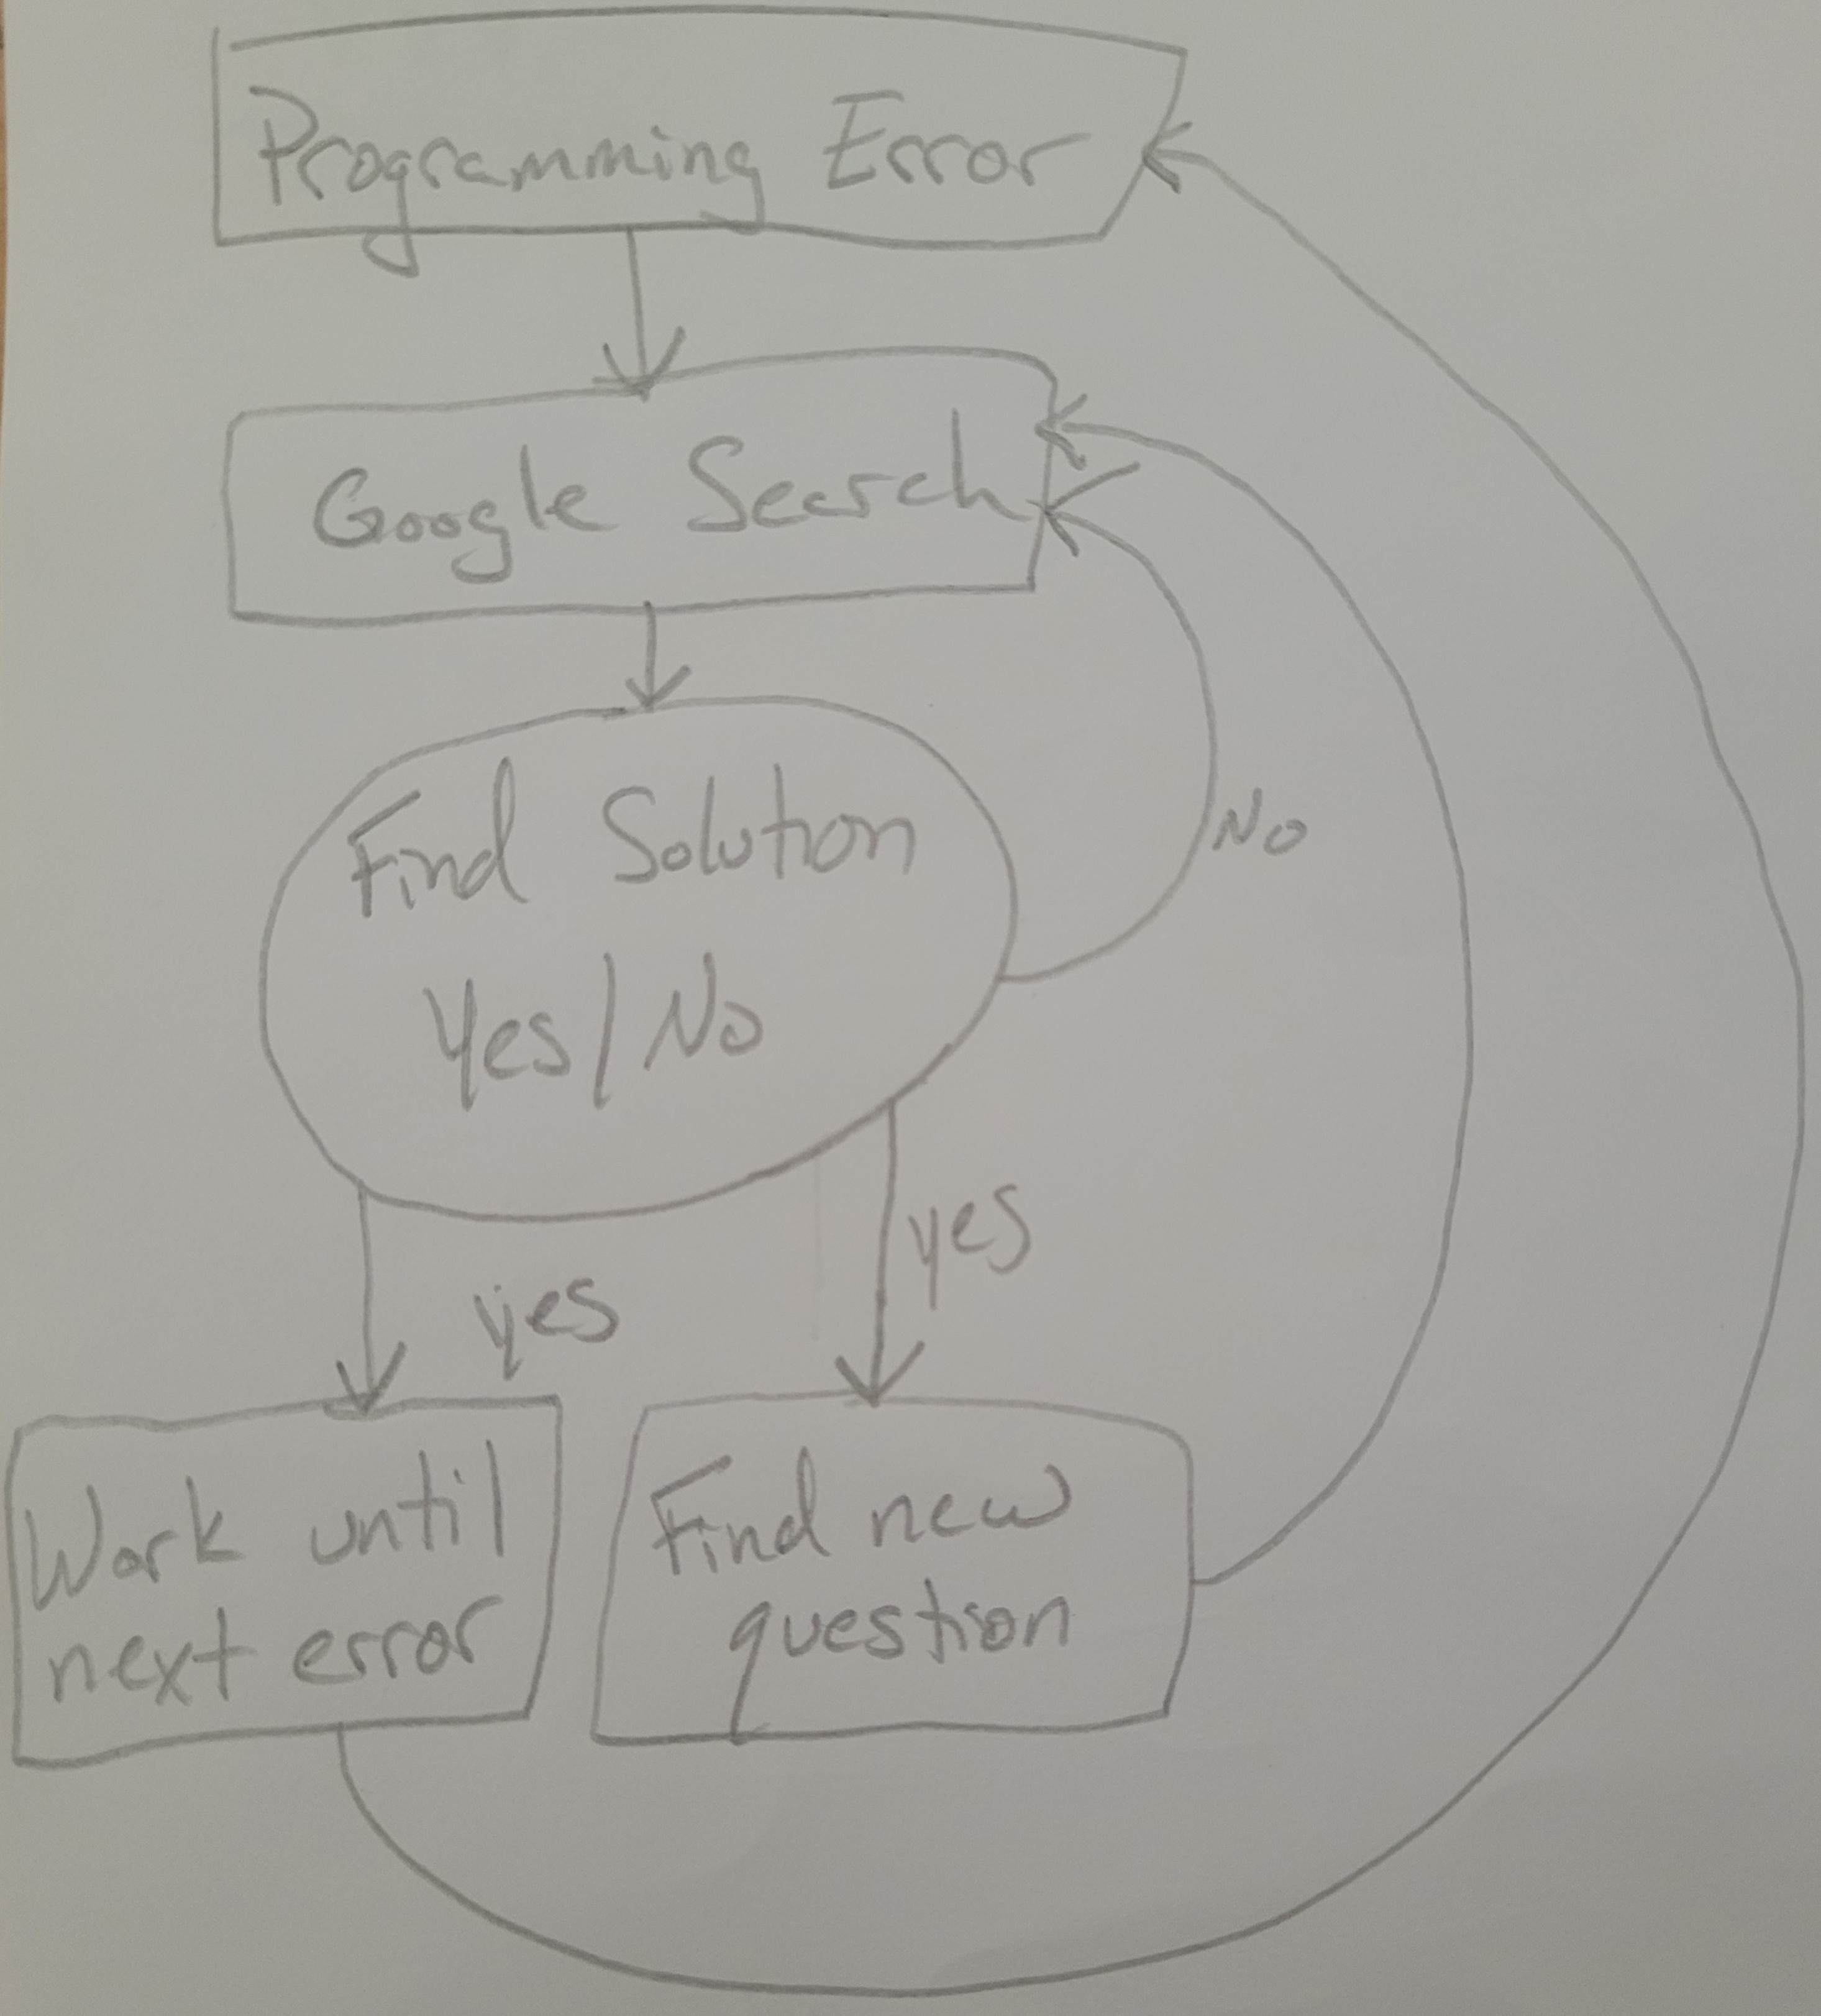 Programming Error
Google Search
Find Solution
Yes/No
No
yes
yes
Work until
next error
Find new
question